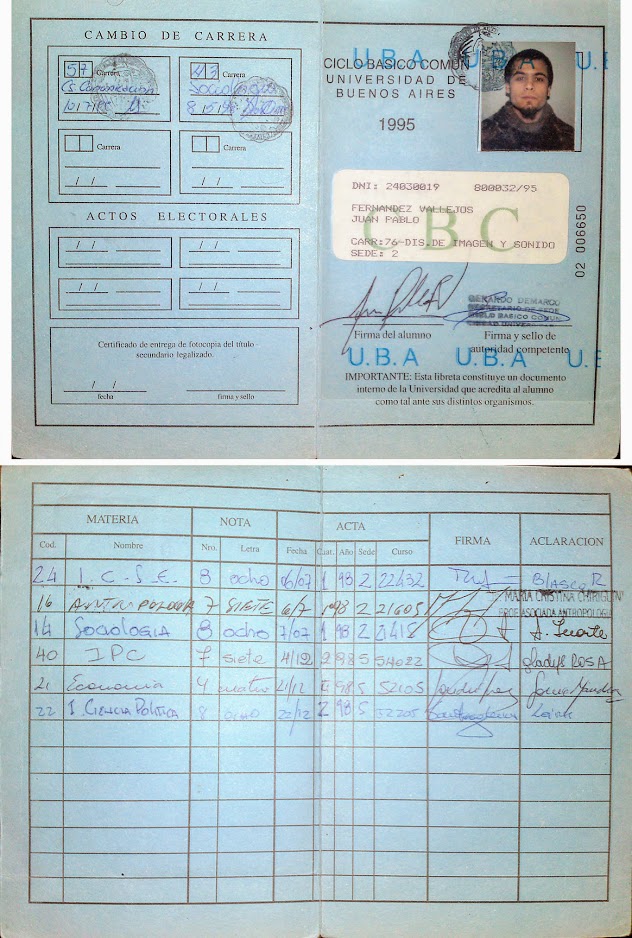 CAMBIO DE CARRERA
57 Carrera
Cs Comunicación
10/7/95
43 Carrera
Sociología
Carrera
/ /
Carrera
/ /
ACTOS ELECTORALES
/ / / /
/ / / /
Certificado de entrega de fotocopia del título
secundario legalizado.
/ /
fecha firma y sello
U.B.A U.B.A U.B
CICLO BASICO COMUN
UNIVERSIDAD DE
BUENOS AIRES
1995
DNI: 24030019 800032/95
FERNANDEZ VALLEJOS
JUAN PABLO
CBC
CARR:76-DIS.DE IMAGEN Y SONIDO
SEDE: 2
02 006650
GERARDO DEMARCO
SECRETARIO DE SEDE
CICLO BASICO COMUN
Firma del alumno
Firma y sello de
autoridad competente
U.B.A U.B.A U.B
IMPORTANTE: Esta libreta constituye un documento
interno de la Universidad que acredita al alumno
como tal ante sus distintos organismos.
MATERIA NOTA ACTA FIRMA ACLARACION
Cod. Nombre Nro. Letra Fecha Cuat. Año Sede Curso
24 I.C.S.E. 8 ocho 06/07 1 98 2 22432 Blasco R
16 ANTROPOLOGIA 7 SIETE 6/7 1º 98 2 21605
MARIA CRISTINA CHIRIGUINI
PROF. ASOCIADA ANTROPOLOGIA
14 SOCIOLOGIA 8 ocho 7/07 1 98 2 21418
40 IPC 7 siete 4/12 2 98 5 54022 gladys ROSA
21 Economia 4 cuatro 21/12 2 98 5 52105
22 I. Ciencia Política 8 ocho 22/12 2 98 5 52205